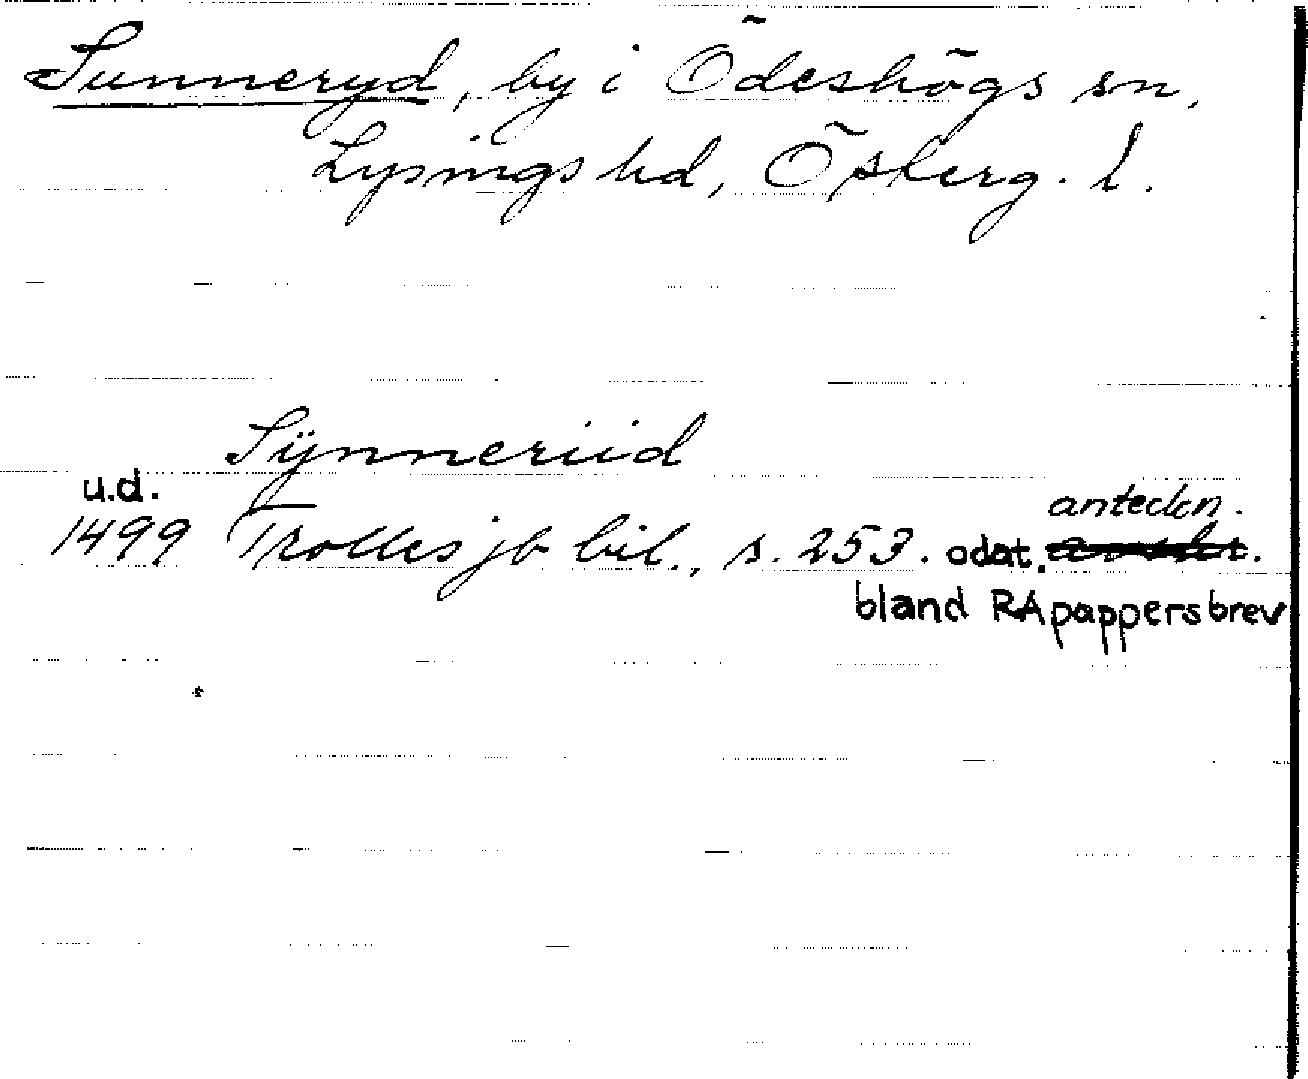 Sunneryd, by i Ödeshögs sn,
Lysings hd, Österg. l.
Sÿnneriid
u.d.
1499 Trolles jb bil., s. 253. odat. anteckn.
bland RA pappersbrev